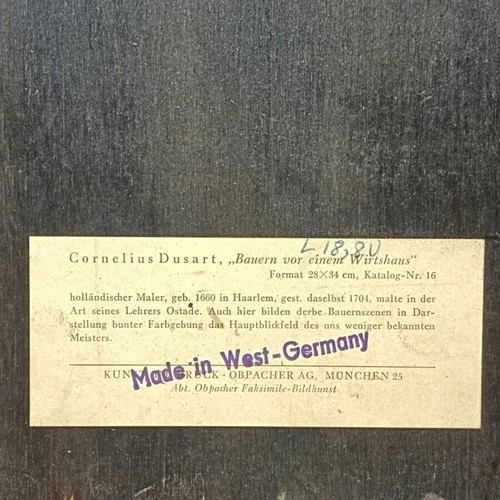 L 18,80
Cornelius Dusart, „Bauern vor einem Wirtshaus"
Format 28×34 cm, Katalog-Nr. 16
holländischer Maler, geb. 1660 in Haarlem, gest. daselbst 1704, malte in der
Art seines Lehrers Ostade. Auch hier bilden derbe Bauernszenen in Dar-
stellung bunter Farbgebung das Hauptblickfeld des uns weniger bekannten
Meisters.
Made in West-Germany
OBPACHER AG, MÜNCHEN 25
Abt. Obpacher Faksimile-Bildkunst